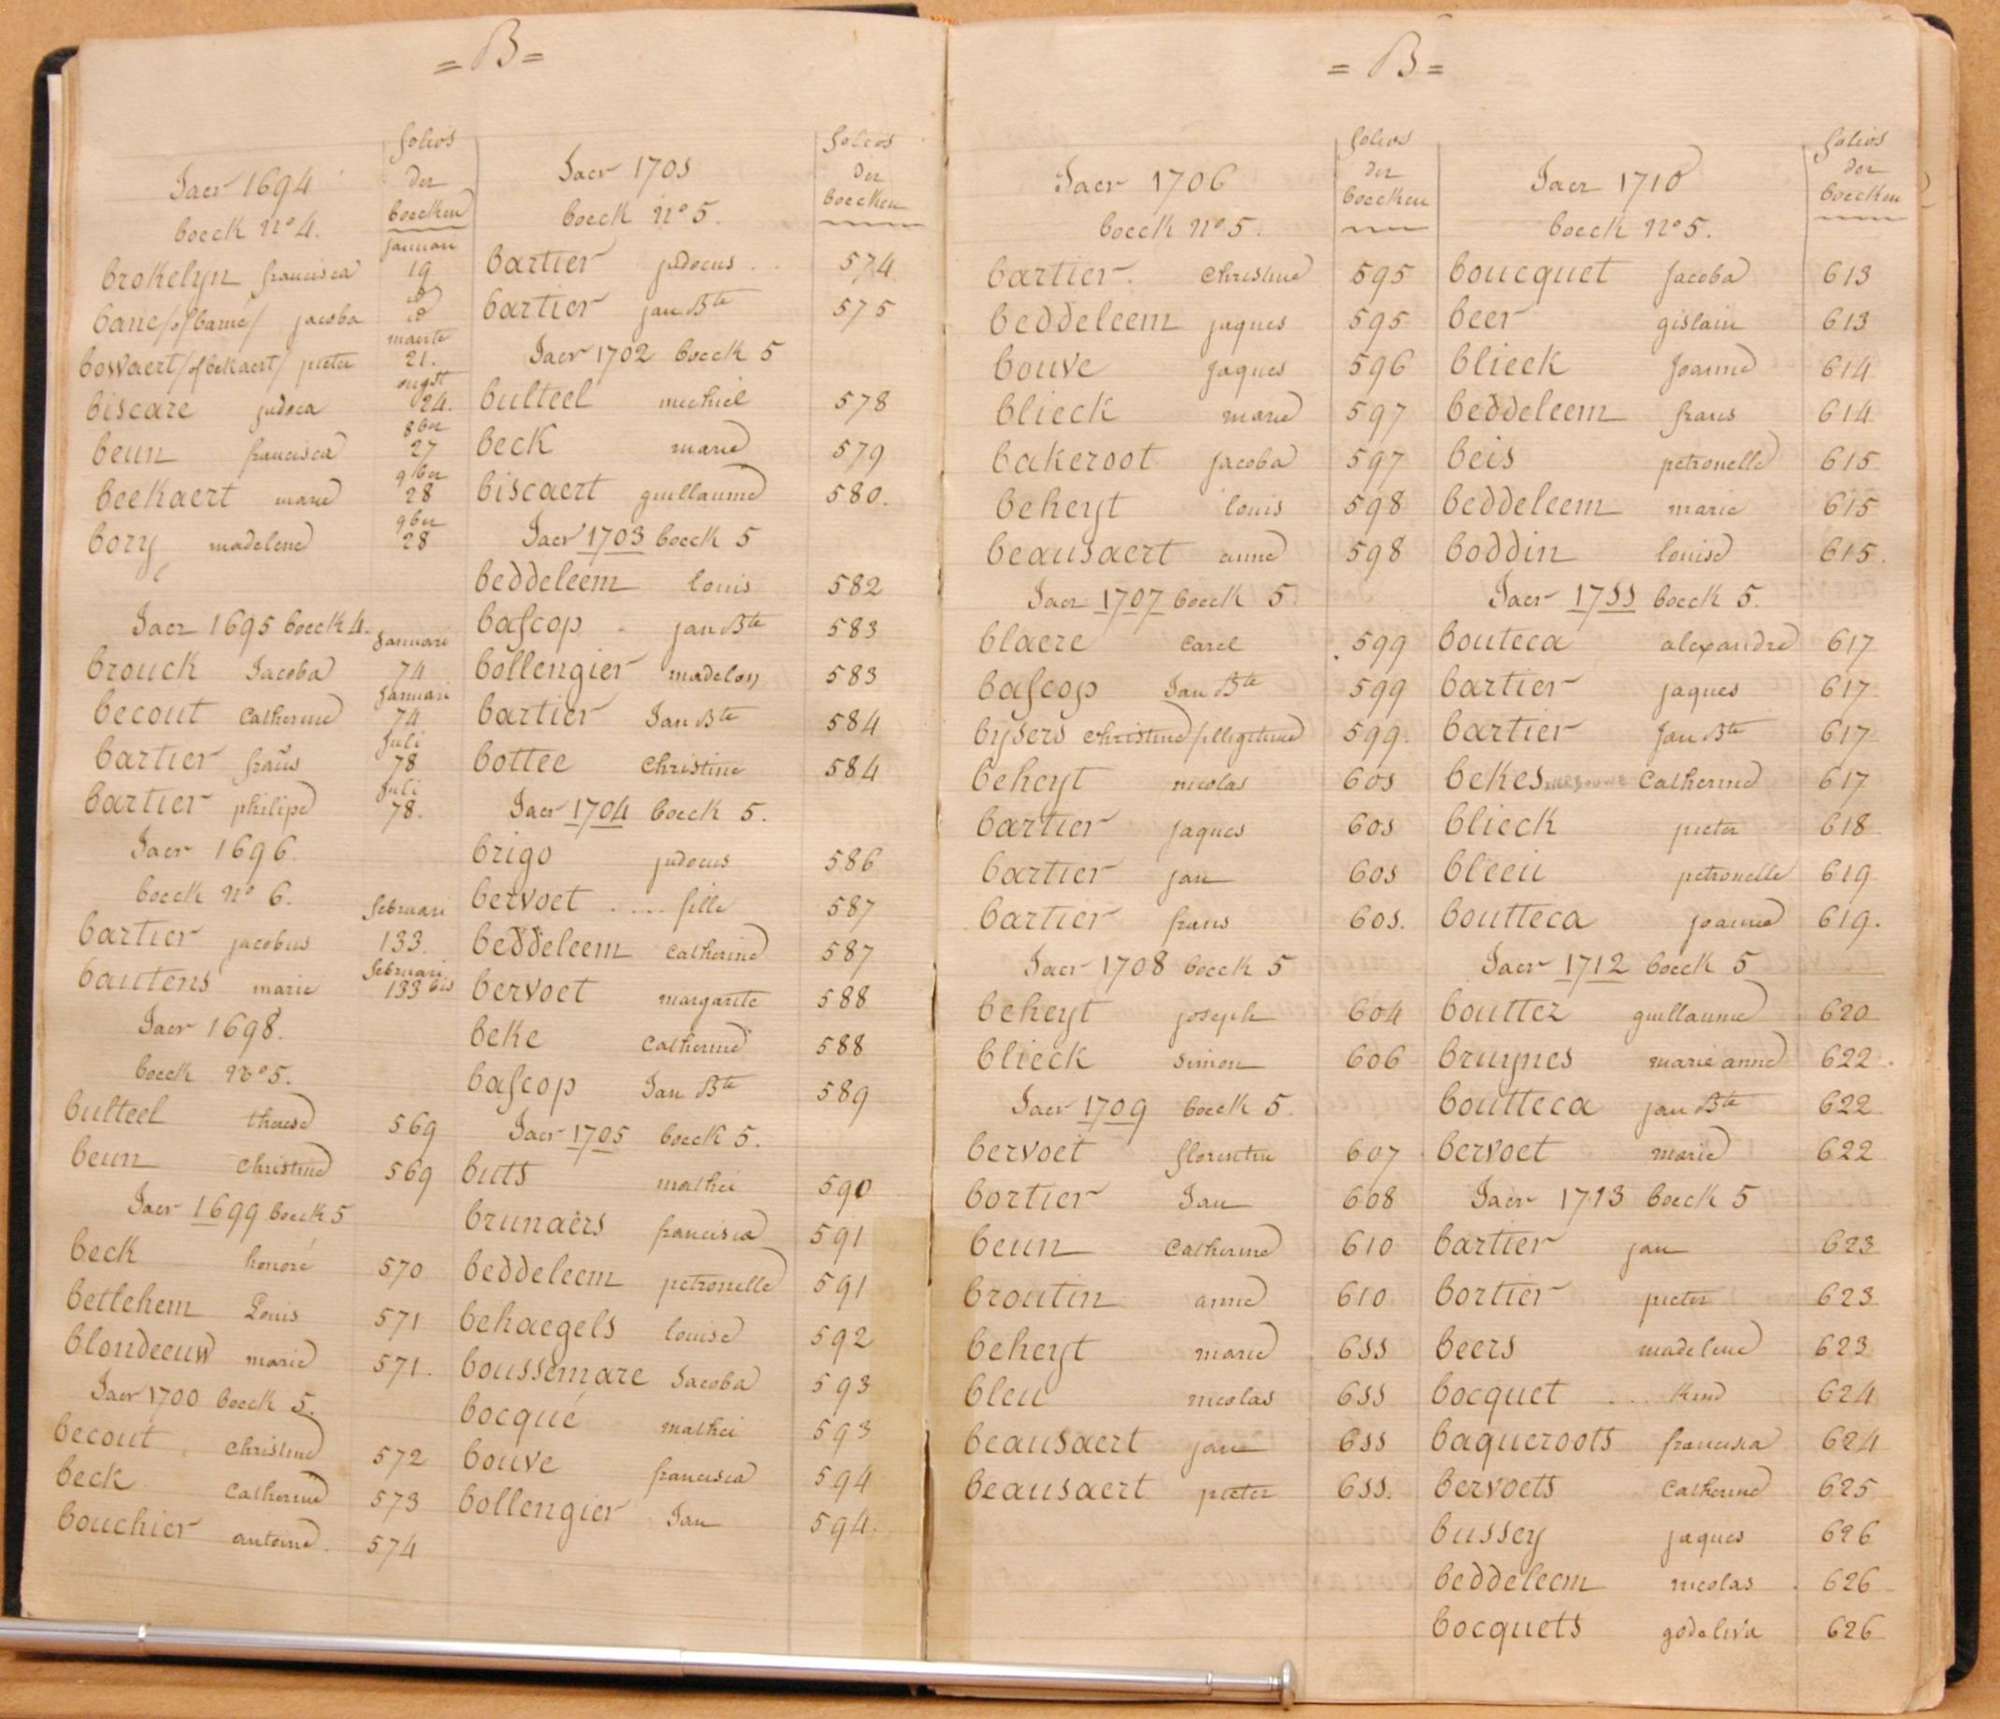 = B =
Jaer 1694
boeck No 4.
folios
der
boecken
januari
brokelyn francisca 19
bane /of bame/ jacoba
maerte
boswaert /of bekaert/ pieter 21.
ougst
biscare judoca 24.
8ber
beun francisca 27
9ber
beekaert marie 28
9ber
bory madelene 28
Jaer 1695 boeck 4.
Januari
brouck Jacoba 74
Januari
becout Catherine 74
Juli
bartier frans 78
Juli
bartier philipe 78.
Jaer 1696.
boeck No 6.
februari
bartier jacobus 133.
februari
bautens marie 133 bis
Jaer 1698.
boeck No 5.
bulteel therese 569
beun Christine 569
Jaer 1699 boeck 5
beck honoré 570
betlehem Louis 571
blondeeuw marie 571.
Jaer 1700 boeck 5.
becout Christine 572
beck Catherine 573
bouchier antoine 574
Jaer 1701
boeck No 5.
folios
der
boecken
bartier judocus 574
bartier jan Bte 575
Jaer 1702 boeck 5
bulteel michiel 578
beck marie 579
biscaert guillaume 580.
Jaer 1703 boeck 5
beddeleem louis 582
bascop jan Bte 583
bollengier madelon 583
bartier Jan Bte 584
bottee Christine 584
Jaer 1704 boeck 5.
brigo judocus 586
bervoet .... fille 587
beddeleem Catherine 587
bervoet margarite 588
beke Catherine 588
bascop Jan Bte 589
Jaer 1705 boeck 5.
buts mathei 590
brunaers francisca 591
beddeleem petronelle 591
behaegels louise 592
boussemare Jacoba 593
bocqué mathei 593
bouve francisca 594
bollengier Jan 594.
= B =
Jaer 1706
boeck No 5.
folios
der
boecken
bartier Christine 595
beddeleem jaques 595
bouve Jaques 596
blieck marie 597
bakeroot Jacoba 597
beheyt louis 598
beausaert anne 598
Jaer 1707 boeck 5.
blaere Carel 599
bascop Jan Bte 599
bysers Christine /illigitime 599.
beheyt nicolas 601
bartier Jaques 601
bartier jan 601
bartier frans 601.
Jaer 1708 boeck 5
beheyt joseph 604
blieck simon 606
Jaer 1709 boeck 5.
bervoet florentin 607
bortier Jan 608
beun Catherine 610
broutin anne 610
beheyt marie 611
bleu nicolas 611
beausaert jan 611
beausaert pieter 611.
Jaer 1710
boeck No 5.
folios
der
boecken
boucquet Jacoba 613
beer gislain 613
blieck Joanne 614
beddeleem frans 614
beis petronelle 615
beddeleem marie 615
boddin louise 615.
Jaer 1711 boeck 5.
bouteca alexandre 617
bartier jaques 617
bartier Jan Bte 617
bekes Catherine 617
blieck pieter 618
bleeu petronelle 619
boutteca joanne 619.
Jaer 1712 boeck 5
bouttez guillaume 620
bruynes marie anne 622
boutteca jan Bte 622
bervoet marie 622
Jaer 1713 boeck 5
bartier jan 623
bortier pieter 623
beers madelene 623
bocquet .... Kind 624
baqueroots francisca 624
bervoets Catherine 625
bussey jaques 626
beddeleem nicolas 626
bocquets godeliva 626